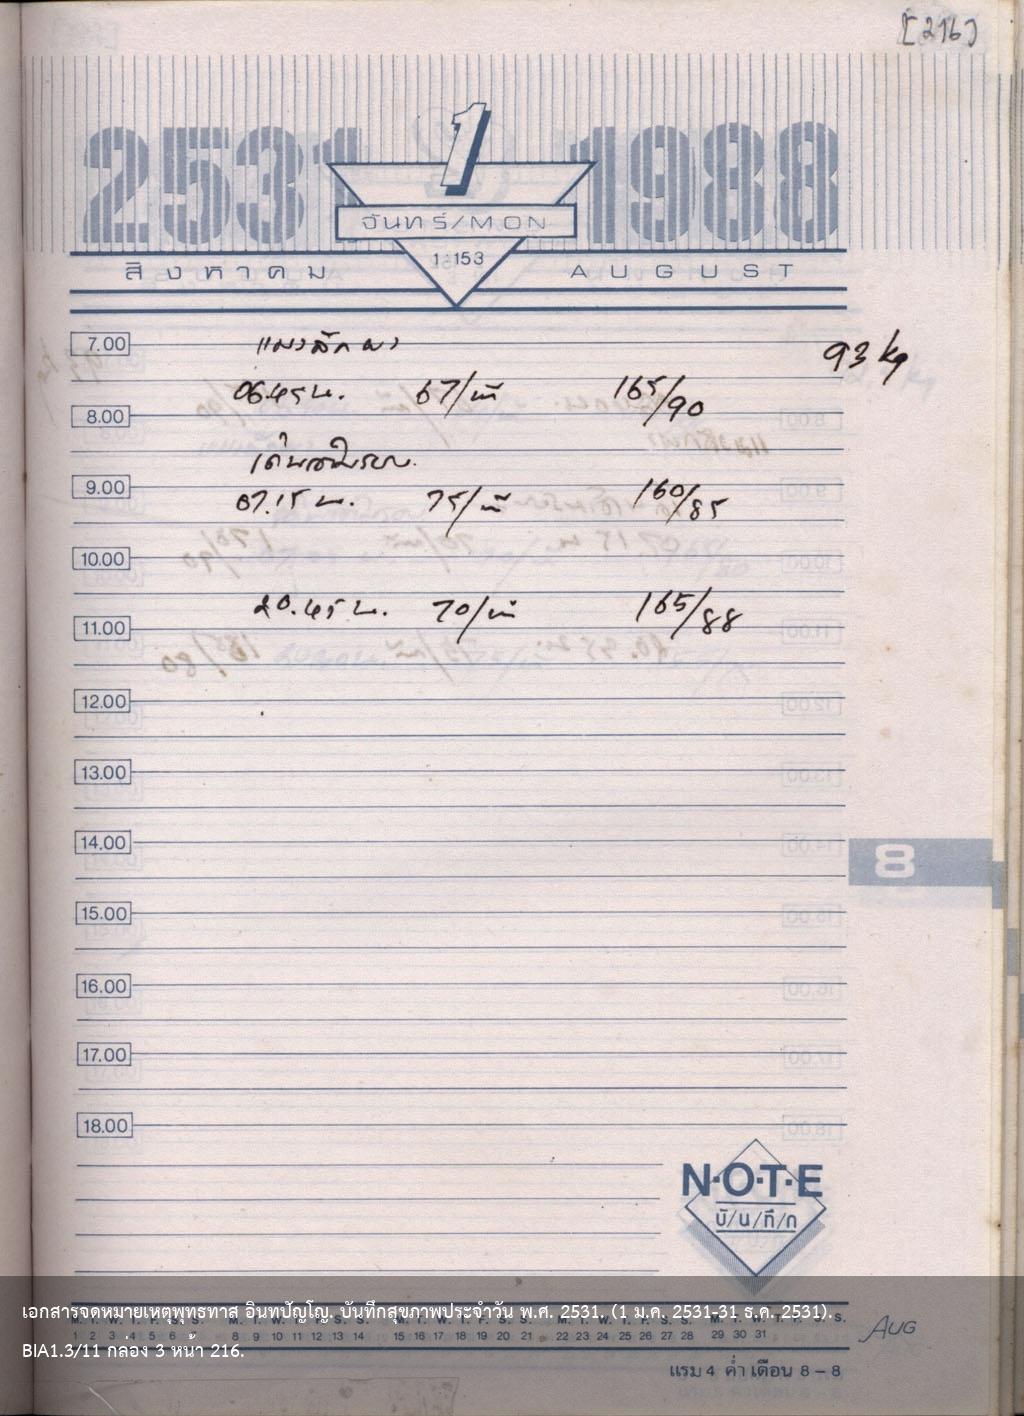 [216]
2531 1 1988
จันทร์/MON
1:153
สิงหาคม AUGUST
7.00
93 kg
06.45 น. 67/นาที 165/90
8.00
9.00
07.15 น. 75/นาที 160/85
10.00
20.45 น. 70/นาที 165/88
11.00
12.00
13.00
14.00
8
15.00
16.00
17.00
18.00
N·O·T·E
บั/น/ทึ/ก
เอกสารจดหมายเหตุพุทธทาส อินทปัญโญ. บันทึกสุขภาพประจำวัน พ.ศ. 2531. (1 ม.ค. 2531-31 ธ.ค. 2531).
M. T. W. T. F. S. S. M. T. W. T. F. S. S. M. T. W. T. F. S. S. M. T. W. T. F. S. S. M. T. W. T. F. S. S.
1 2 3 4 5 6 7 8 9 10 11 12 13 14 15 16 17 18 19 20 21 22 23 24 25 26 27 28 29 30 31
AUG
BIA1.3/11 กล่อง 3 หน้า 216.
แรม 4 ค่ำ เดือน 8 – 8